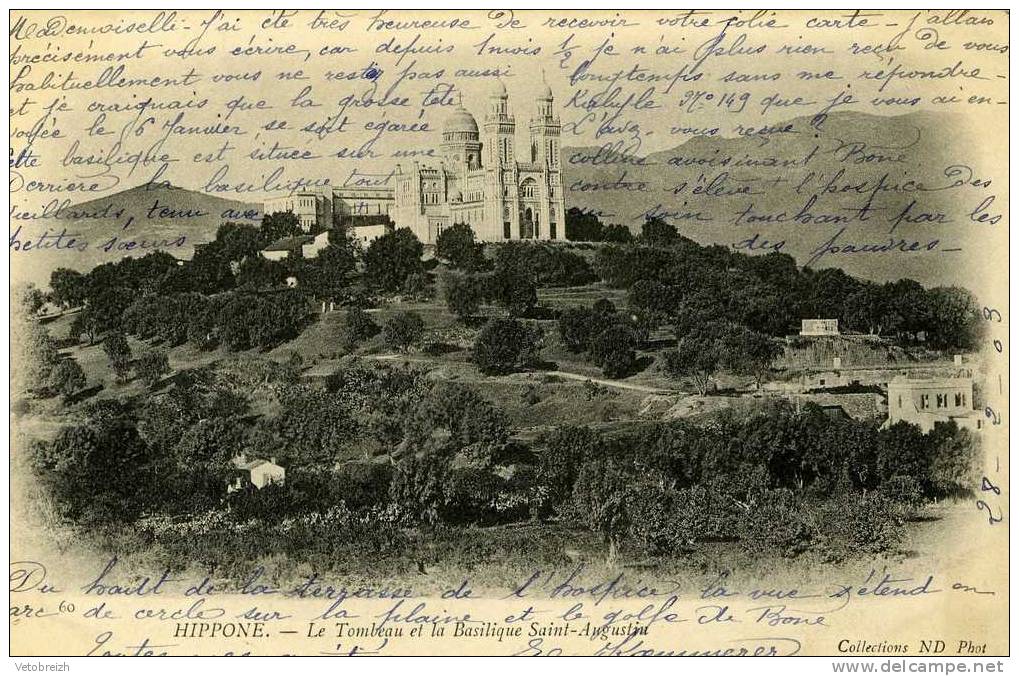 Mademoiselle - J'ai été très heureuse de recevoir votre jolie carte - j'allais
précisément vous écrire, car depuis 1 mois 1/2 je n'ai plus rien reçu de vous
habituellement vous ne restez pas aussi longtemps sans me répondre -
et je craignais que la grosse tête Kabyle Nº 149 que je vous ai en-
voyée le 6 Janvier se soit égarée L'avez-vous reçue ?
Cette basilique est située sur une colline avoisinant Bone
Derrière la basilique tout contre s'élève l'hospice des
vieillards, tenu avec soin touchant par les
petites sœurs des pauvres -
28-2-03
Du haut de la terrasse de l'hospice la vue s'étend en
arc de cercle sur la plaine et le golfe de Bone
60
HIPPONE. — Le Tombeau et la Basilique Saint-Augustin
Toutes
Collections ND Phot
Vetobreizh
delcampe.net